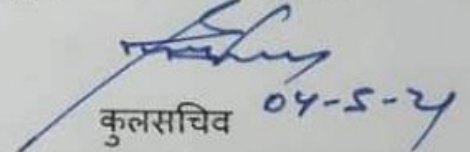 कुलसचिव 04-5-21